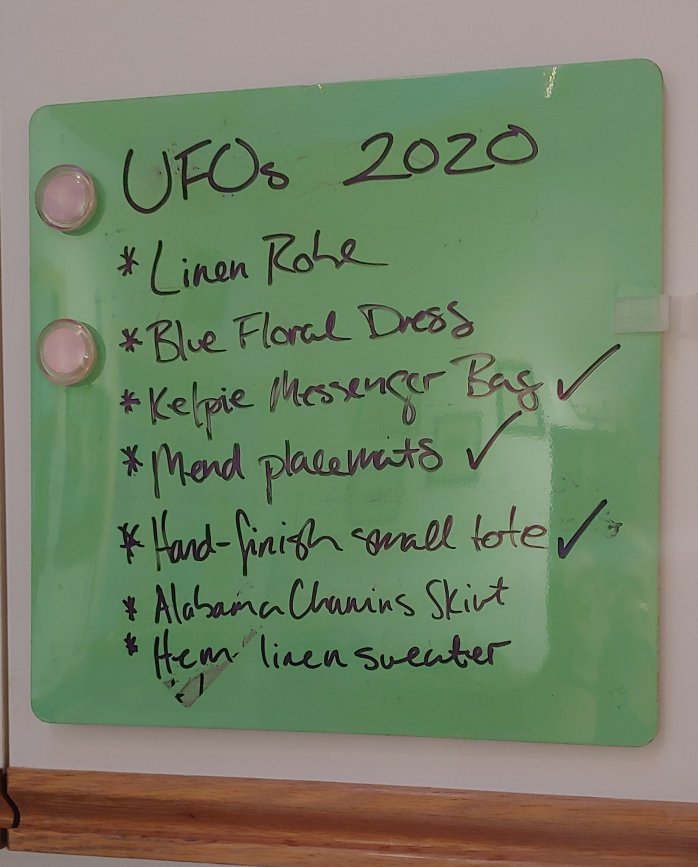 UFOs 2020
* Linen Robe
* Blue Floral Dress
* Kelpie Messenger Bag ✓
* Mend placemats ✓
* Hand-finish small tote ✓
* Alabama Chanins Skirt
* Hem linen sweater